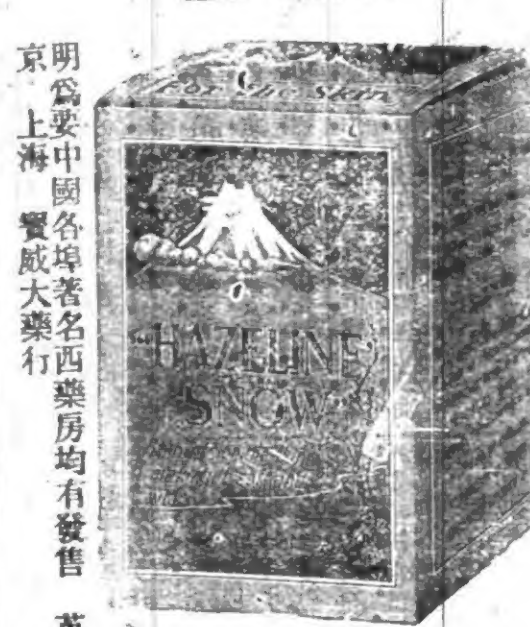 明爲要中國各埠著名西藥房均有發售 英
京 上海 寶威大藥行
For the Skin
"HAZELINE
SNOW"